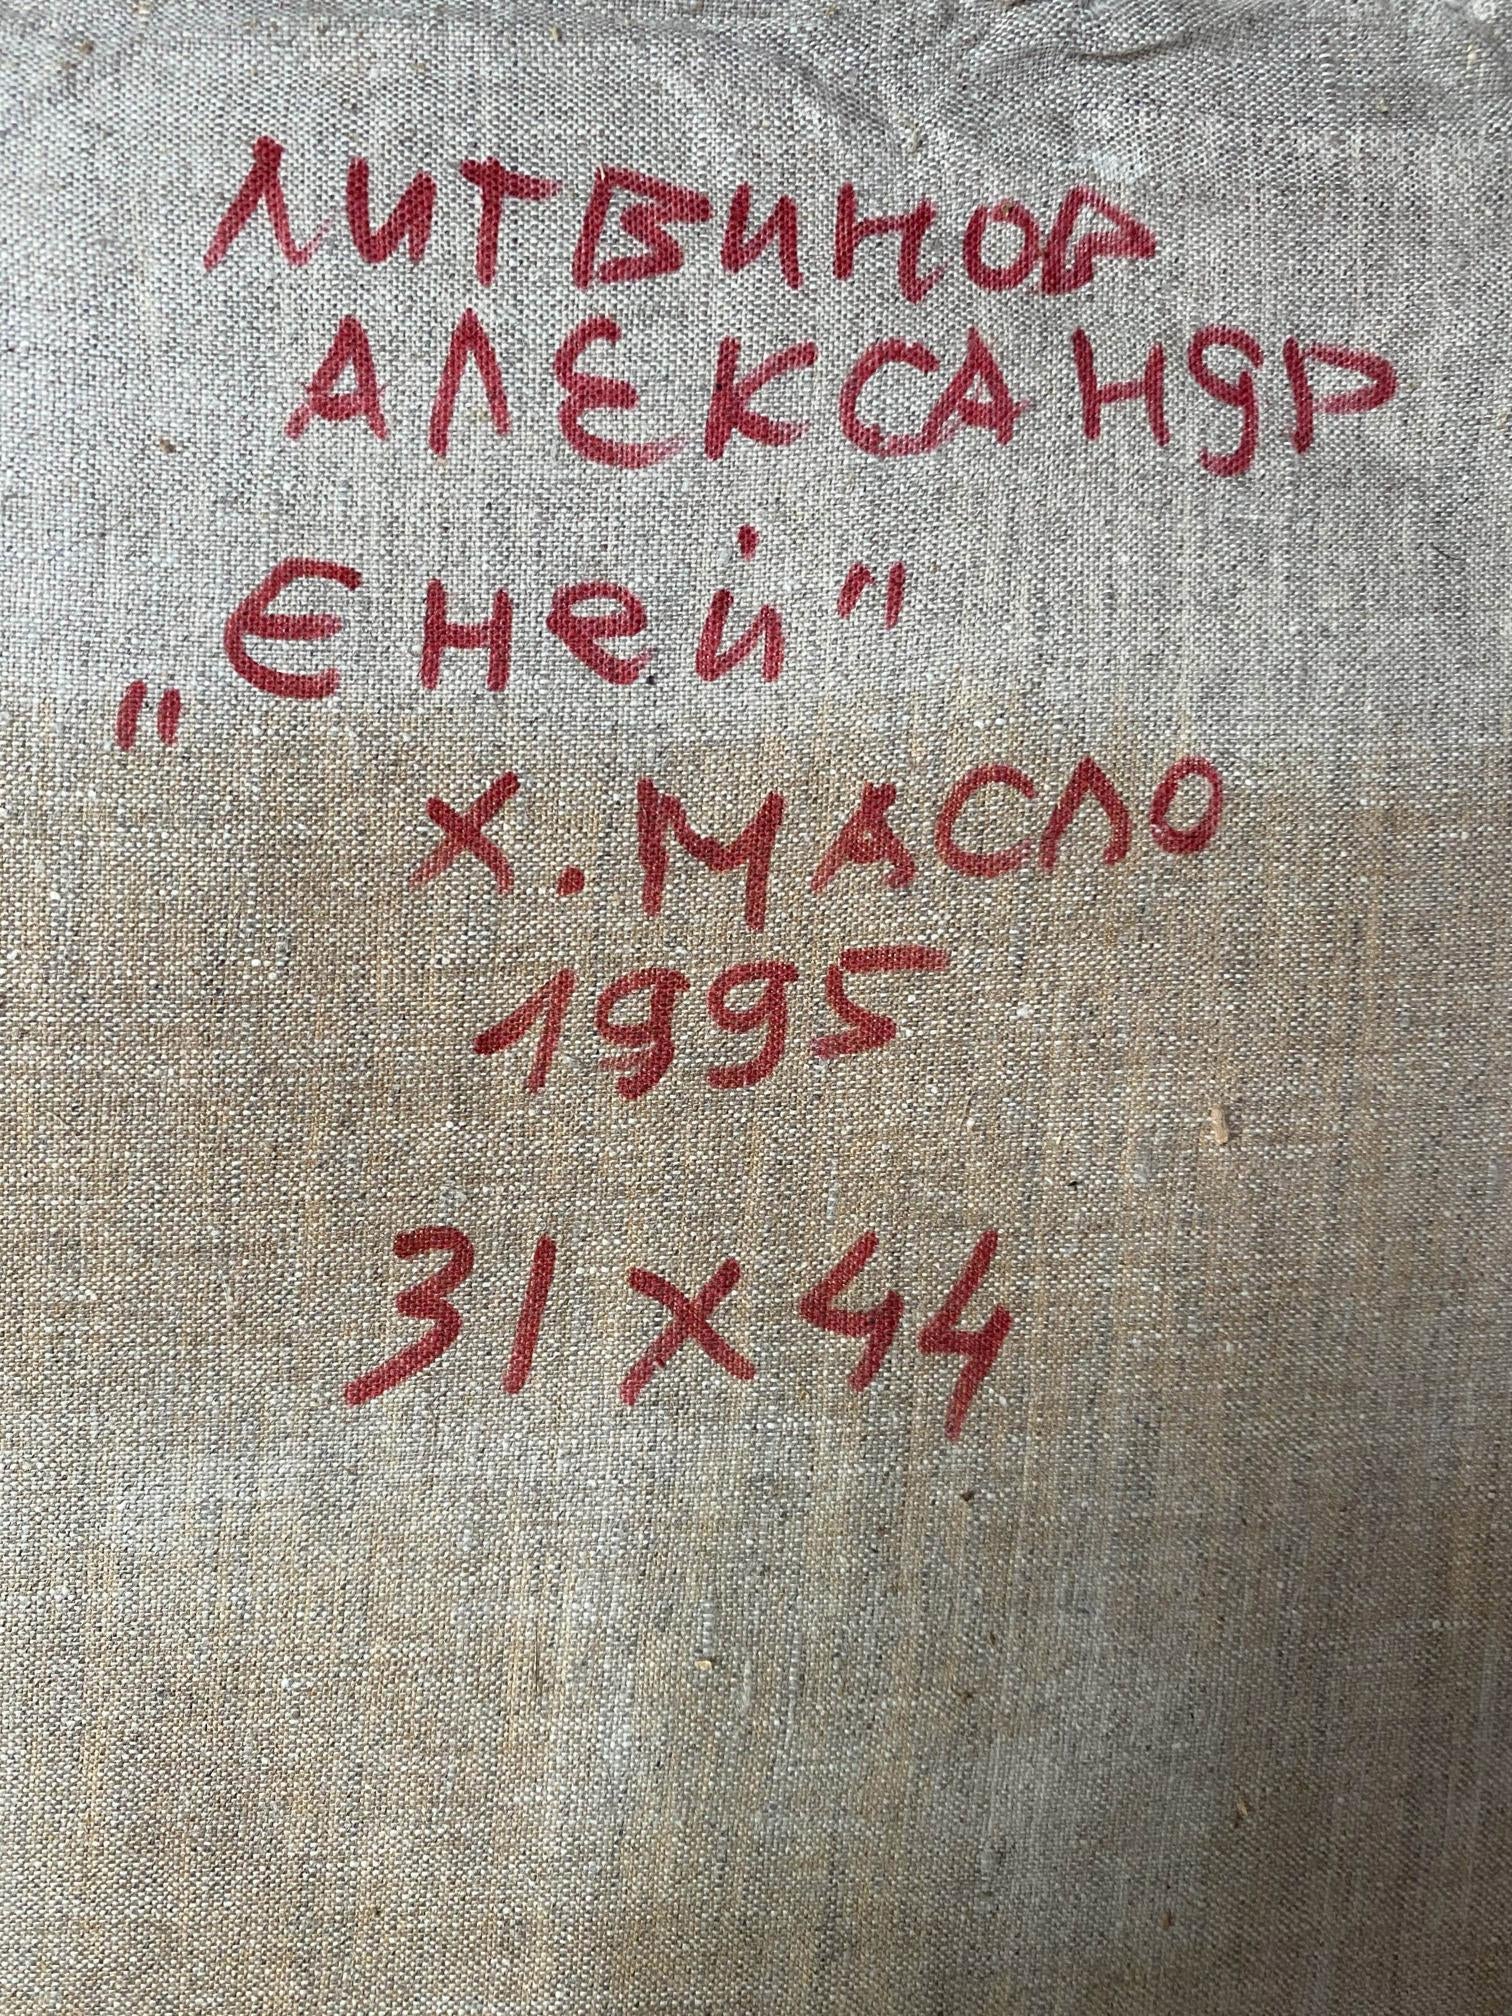 ЛИТВИНОВ
АЛЕКСАНДР
„Еней"
Х. МАСЛО
1995
31 х 44